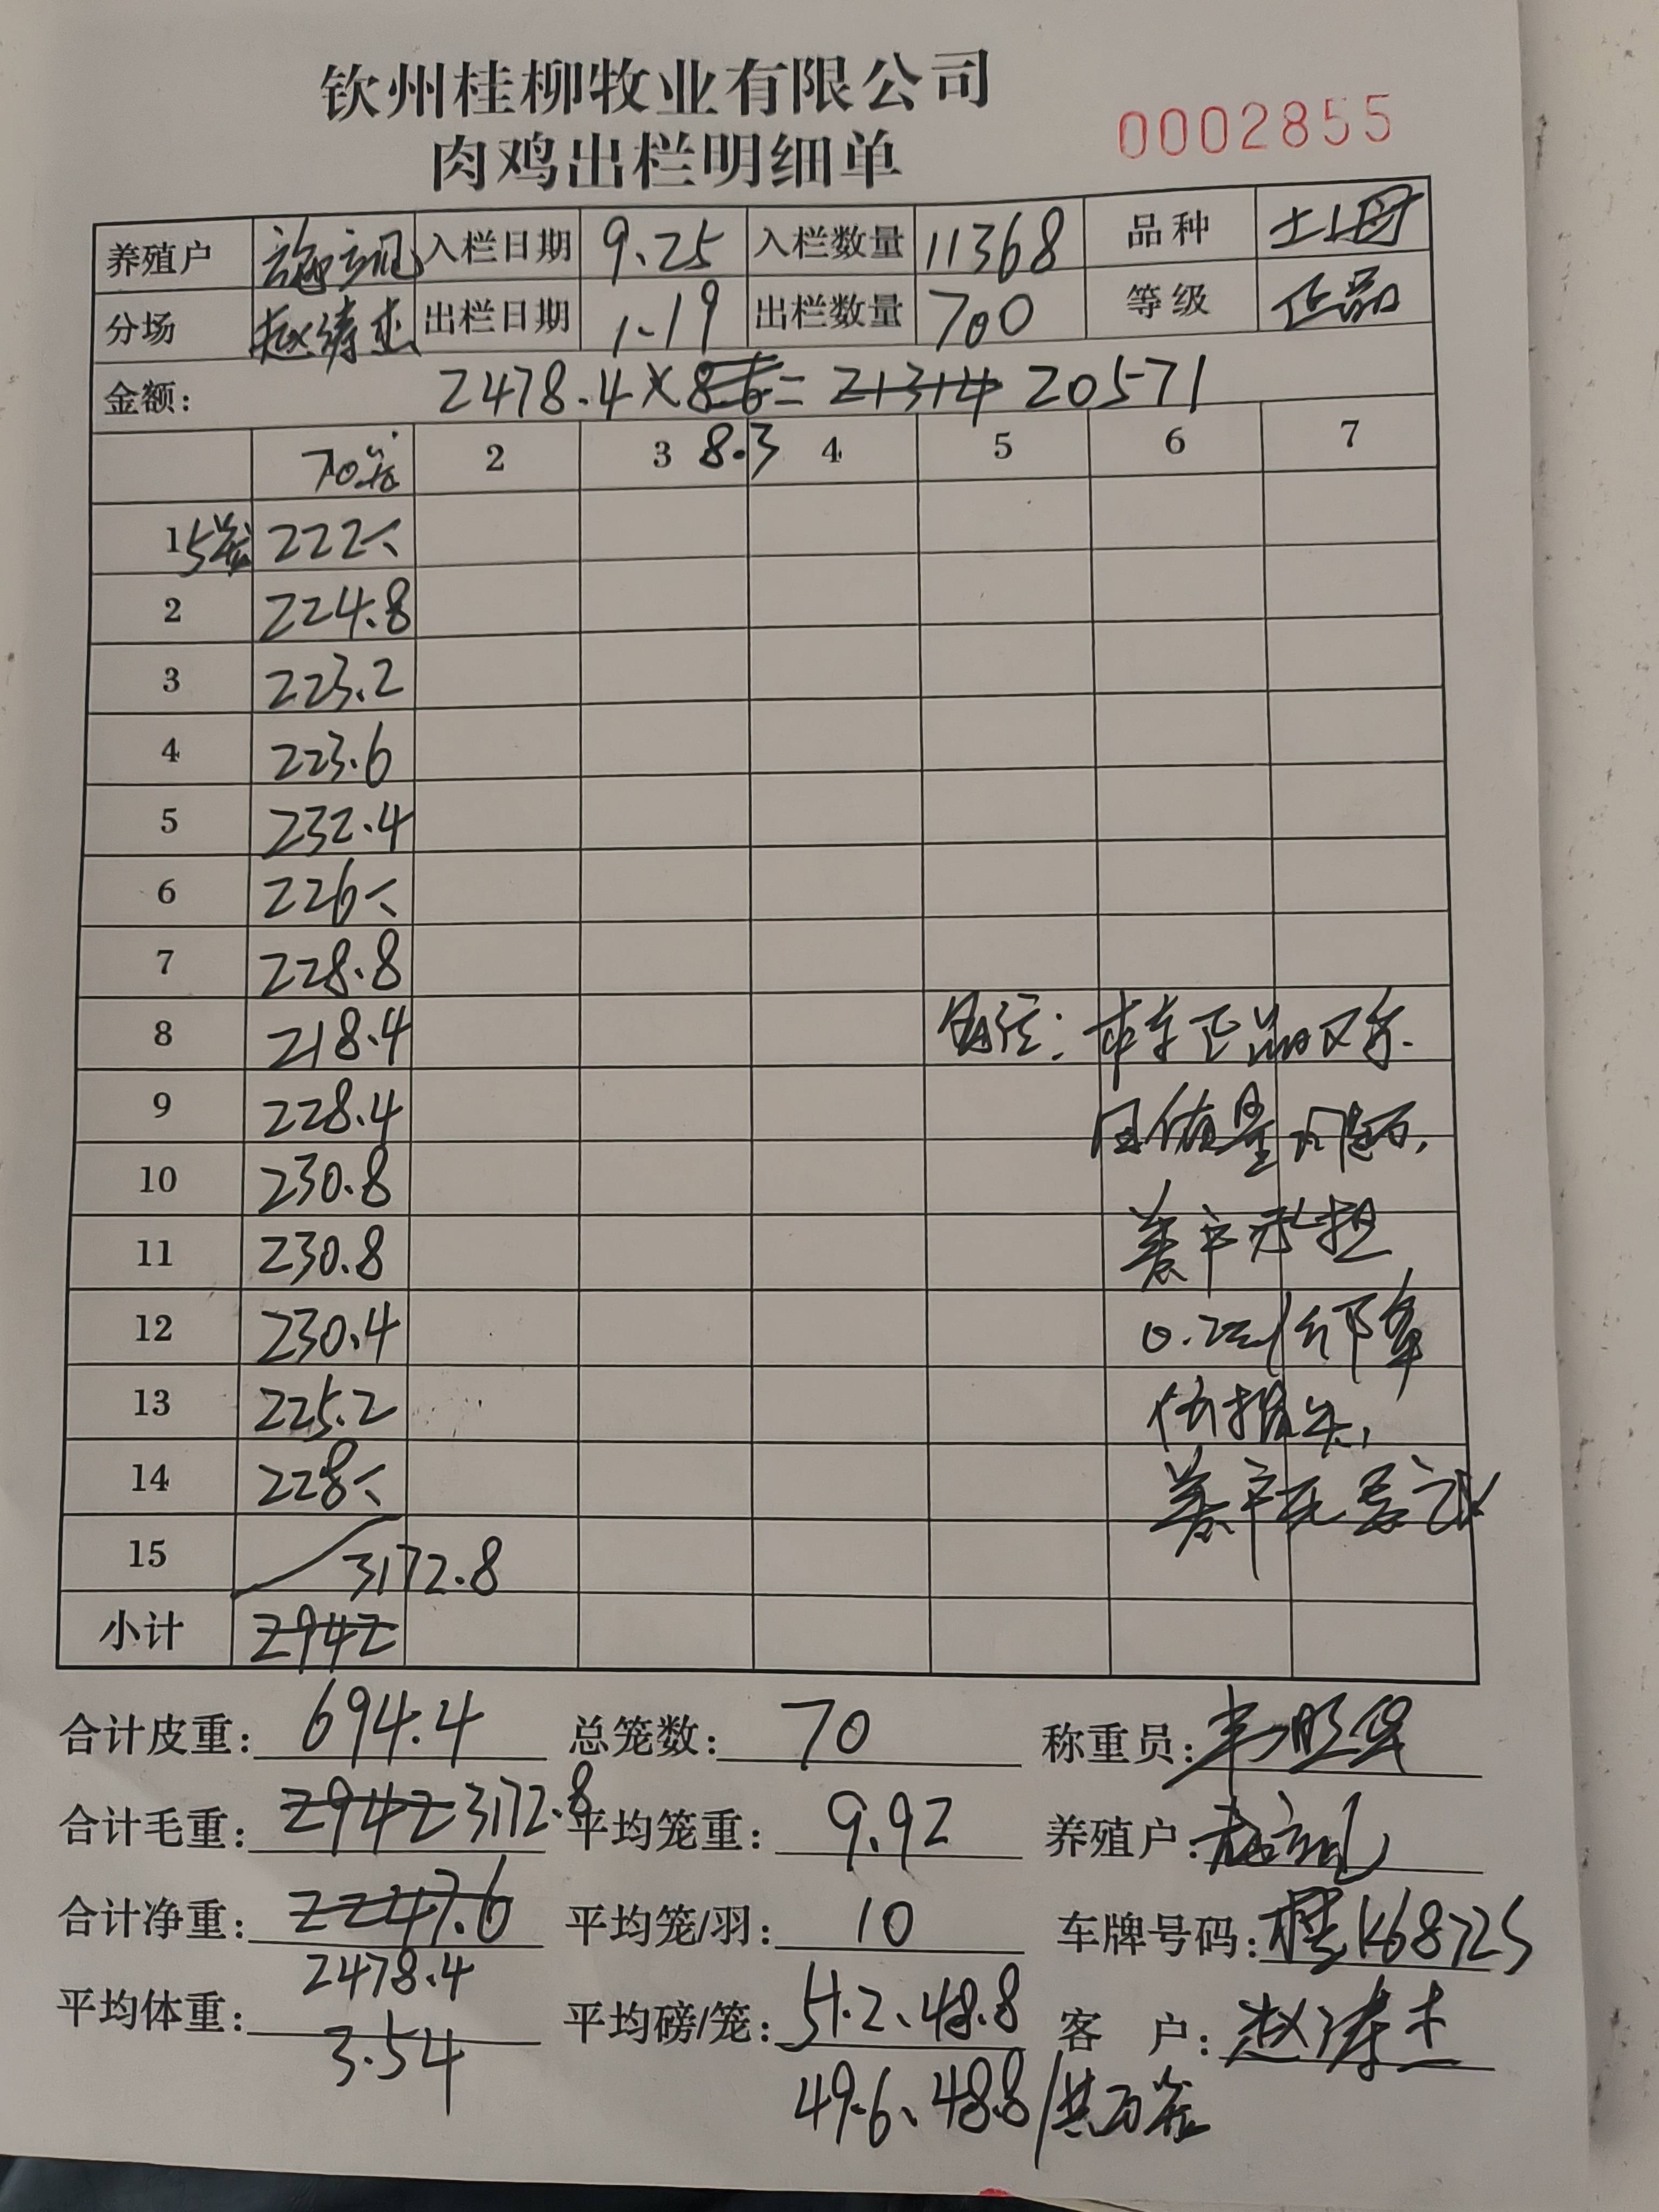 钦州桂柳牧业有限公司
肉鸡出栏明细单 0002855
养殖户 施 入栏日期 9.25 入栏数量 11368 品种 土母
分场 赵涛杰 出栏日期 1.19 出栏数量 700 等级 正品
金额: 2478.4×8.6= 21314 20571
70笼 2 3 8.3 4 5 6 7
1 5笼 222
2 224.8
3 223.2
4 223.6
5 232.4
6 226
7 228.8
8 218.4 备注: 本车正品
9 228.4
10 230.8 养户承担
11 230.8
12 230.4 0.2元/斤下车
13 225.2 损失,
14 228 养户
15 3172.8
小计 2942
合计皮重: 694.4 总笼数: 70 称重员:
合计毛重: 2942 3172.8 平均笼重: 9.92 养殖户:
合计净重: 2247.6 平均笼/羽: 10 车牌号码: 桂K68725
2478.4
平均体重: 3.54 平均磅/笼: 51.2、48.8 客 户: 赵涛杰
49.6、48.8/共百笼